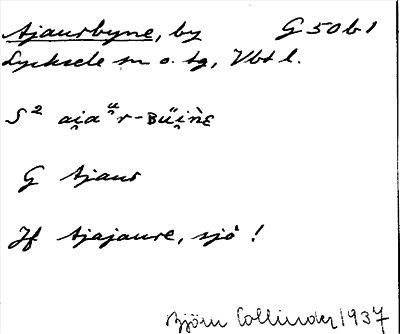 Ajaurbyne, by G 50 b 1
Lycksele sn o. tg, Vbt l.
S² ai̯aᵘ̈r-Bu̇̈i̯ǹɛ
G Ajaur
Jf Ajajaure, sjö !
Björn Collinder 1937